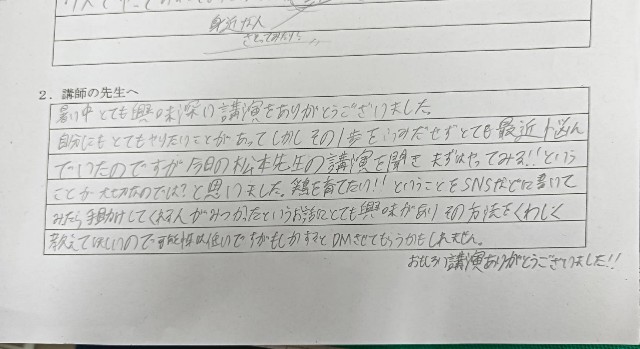 身近な人
2. 講師の先生へ
暑い中とても興味深い講演をありがとうございました。
自分にもとてもやりたいことがあってしかしその1歩をふみだせずとても最近悩ん
でいたのですが今日の松本先生の講演を聞きまずはやってみる!!という
ことが大切なのでは?と思いました。鶏を育てたい!!ということをSNSなどに書いて
みたら手助けしてくれる人がみつかったというお話にとても興味がありその方法をくわしく
教えてほしいので可能性は低いですがもしかするとDMさせてもらうかもしれません。
おもしろい講演ありがとうございました!!